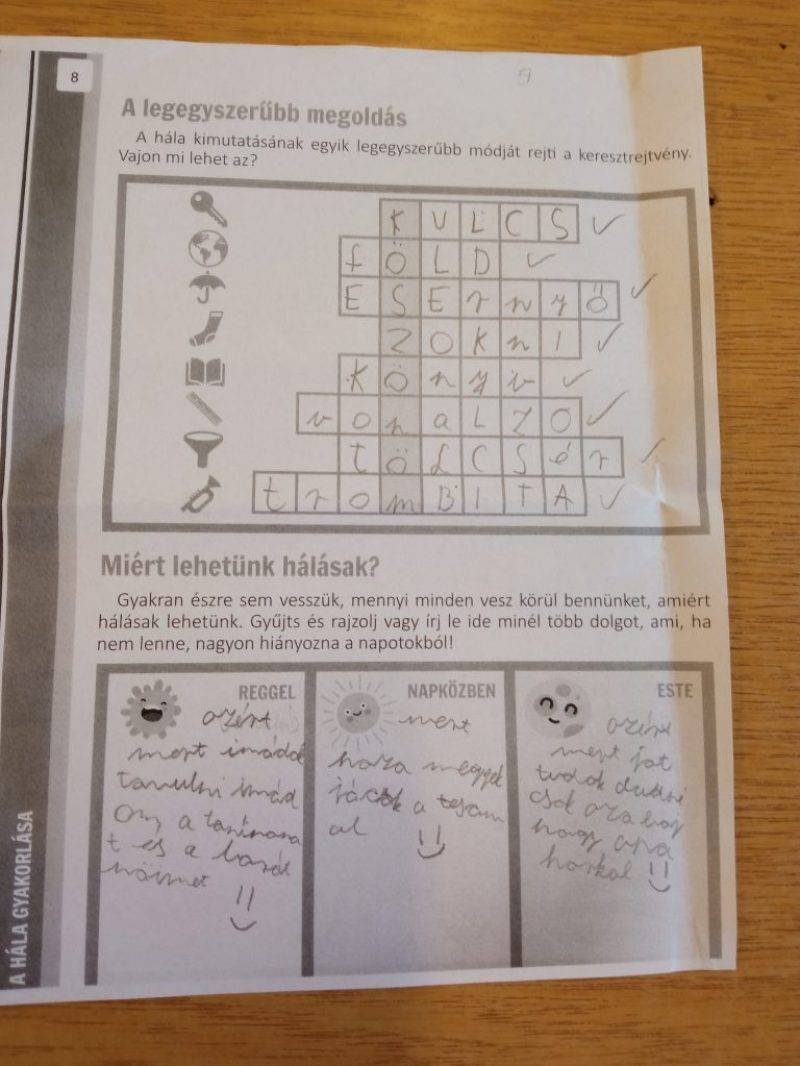 8
A legegyszerűbb megoldás
A hála kimutatásának egyik legegyszerűbb módját rejti a keresztrejtvény.
Vajon mi lehet az?
K U L C S
f Ö L D
E S E r n y ő
Z O K n I
K ö n y v
v o n a L Z O
t ö L C S é r
t r o m B I T A
Miért lehetünk hálásak?
Gyakran észre sem vesszük, mennyi minden vesz körül bennünket, amiért
hálásak lehetünk. Gyűjts és rajzolj vagy írj le ide minél több dolgot, ami, ha
nem lenne, nagyon hiányozna a napotokból!
REGGEL
azért
mert imádok
tanulni imád
om a tanárona
t es a barát
nőimet
NAPKÖZBEN
mert
haza megyek
a tesom
al
ESTE
azért
mert jot
tudok
csak az a baj
hogy apa
horkol
A HÁLA GYAKORLÁSA